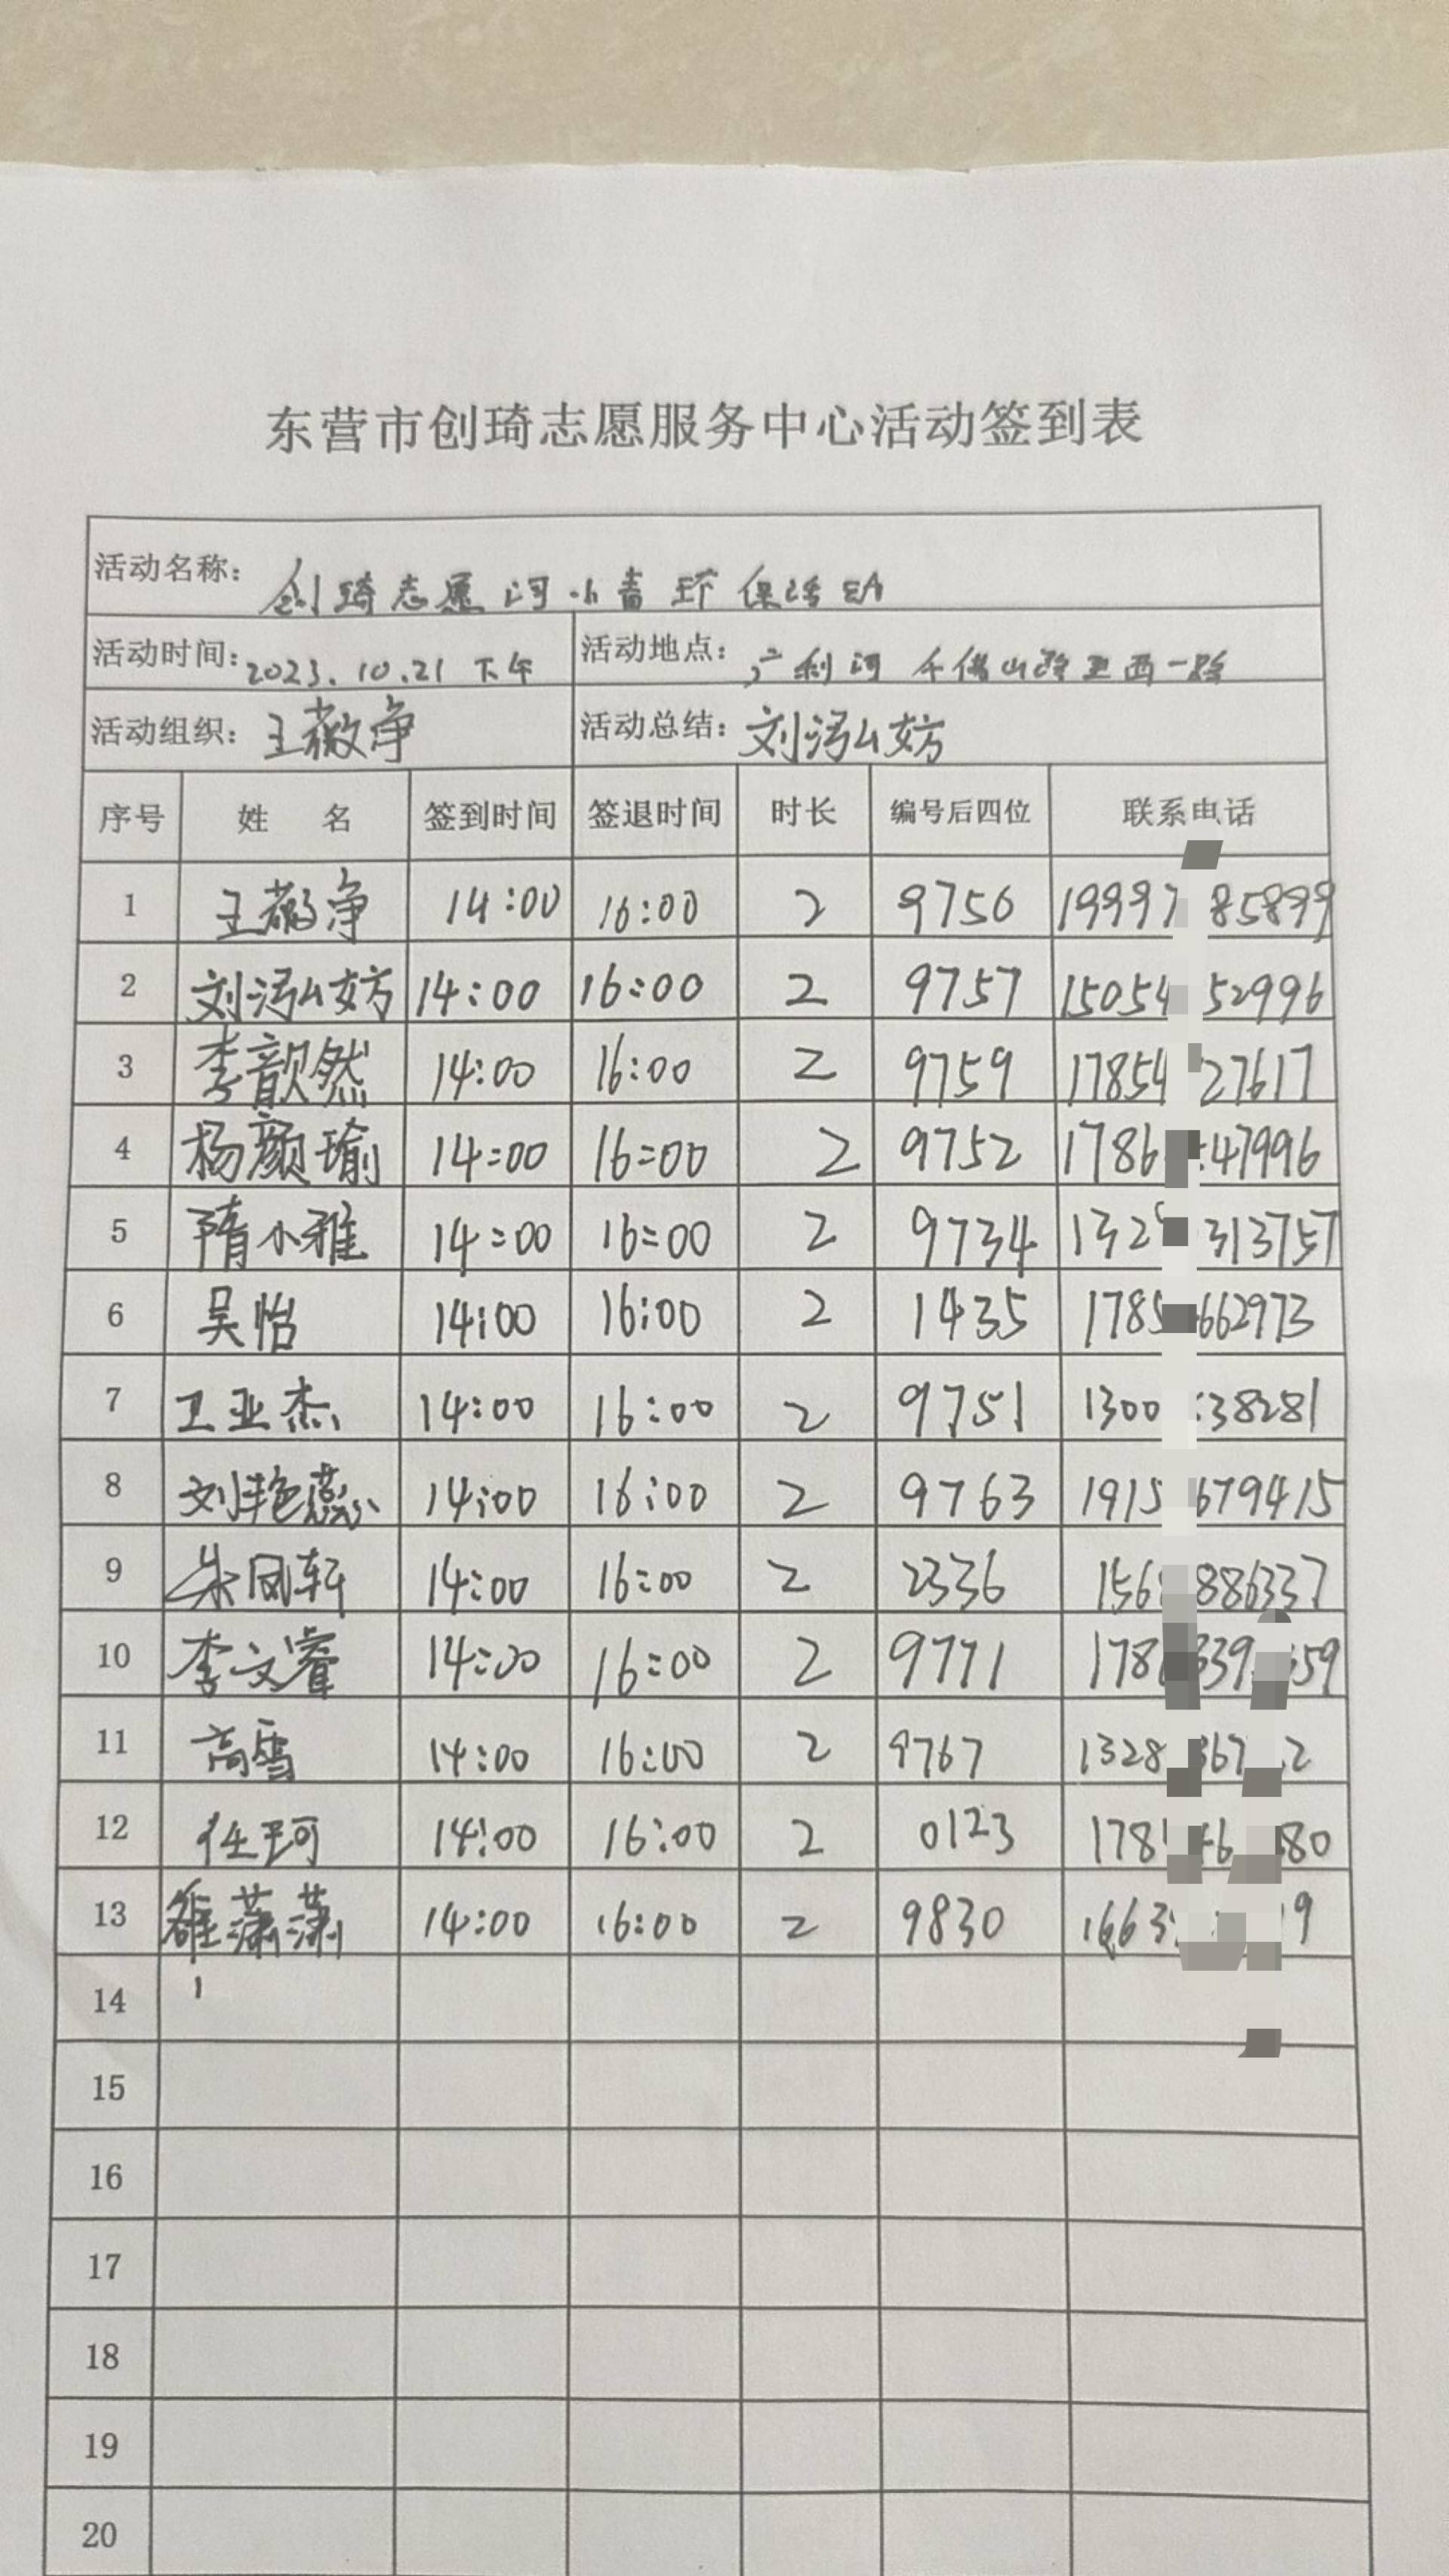 东营市创琦志愿服务中心活动签到表
活动名称: 创琦志愿河小青环保活动
活动时间: 2023.10.21 下午 活动地点: 广利河 千佛山路至西一路
活动组织: 王薇净 活动总结:
序号 姓 名 签到时间 签退时间 时长 编号后四位 联系电话
1 王薇净 14:00 16:00 2 9756 19997 85899
2 14:00 16:00 2 9757 15054 52996
3 李歆然 14:00 16:00 2 9759 17854 27617
4 杨颜瑜 14:00 16:00 2 9752 1786 47996
5 隋小雅 14:00 16:00 2 9734 132 313757
6 吴怡 14:00 16:00 2 1435 1785 662973
7 王亚杰 14:00 16:00 2 9751 1300 38281
8 刘艳蕊 14:00 16:00 2 9763 1915 679415
9 朱凤轩 14:00 16:00 2 2336 156 886337
10 李文睿 14:00 16:00 2 9771 178 39 59
11 高雪 14:00 16:00 2 9767 1328 67 2
12 任珂 14:00 16:00 2 0123 178 6 80
13 潇潇 14:00 16:00 2 9830 1663 19
14
15
16
17
18
19
20